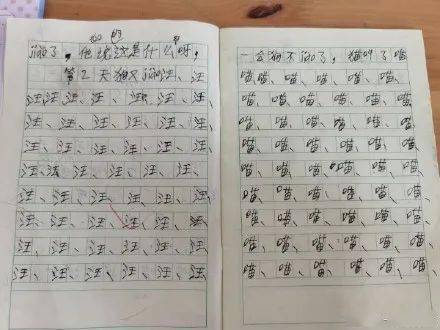 jiào了。他说这是什么呀,
第2天狗又jiào汪、汪
汪汪、汪、汪、汪、汪、汪、
汪、汪、汪、汪、汪、汪、
汪、汪、汪、汪、汪、汪、
汪、汪、汪、汪、汪、汪、
汪、汪、汪、汪、汪、汪、
汪、汪、汪、汪、汪、汪、
汪、汪、汪、汪、汪、汪、
汪、汪、汪、汪、汪、汪、
一会狗不jiào了,猫叫了喵
喵喵、喵、喵、喵、喵、
喵、喵、喵、喵、喵、喵、
喵、喵、喵、喵、喵、喵、
喵、喵、喵、喵、喵、喵、
喵、喵、喵、喵、喵、喵、
喵、喵、喵、喵、喵、喵、
喵、喵、喵、喵、喵、喵、
喵、喵、喵、喵、喵、喵、
喵、喵、喵、喵、喵、喵、